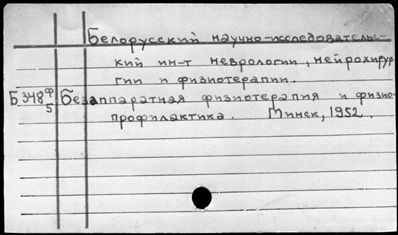 Белорусский научно-исследовательс-
кий ин-т неврологии, нейрохирур
гии и физиотерапии.
Б 348 ф/5 Безаппаратная физиотерапия и физио-
профилактика. Минск, 1952.